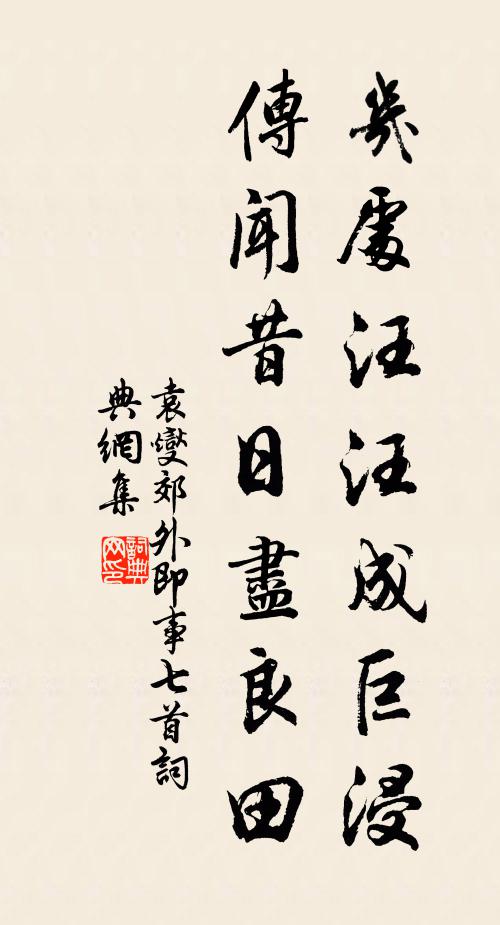 幾處汪汪成巨浸
傳聞昔日盡良田
袁燮郊外即事七首詞
典網集
詞典
网印